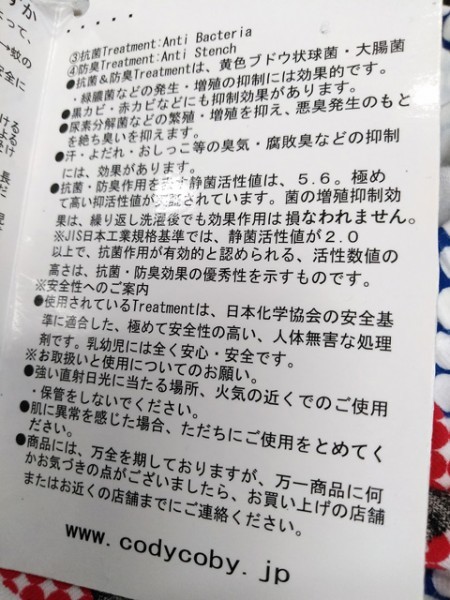 ③抗菌Treatment:Anti Bacteria
④防臭Treatment:Anti Stench
●抗菌&防臭Treatmentは、黄色ブドウ状球菌・大腸菌
・緑膿菌などの発生・増殖の抑制には効果的です。
●黒カビ・赤カビなどにも抑制効果があります。
●尿素分解菌などの繁殖・増殖を抑え、悪臭発生のもと
を絶ち臭いを抑えます。
●汗・よだれ・おしっこ等の臭気・腐敗臭などの抑制
には、効果があります。
●抗菌・防臭作用を す静菌活性値は、5.6。極め
て高い抑活性が されています。菌の増殖抑制効
果は、繰り返し洗濯後でも効果作用は損なわれません。
※JIS日本工業規格基準では、静菌活性値が2.0
以上で、抗菌作用が有効的と認められる、活性数値の
高さは、抗菌・防臭効果の優秀性を示すものです。
※安全性へのご案内
●使用されているTreatmentは、日本化学協会の安全基
準に適合した、極めて安全性の高い、人体無害な処理
剤です。乳幼児には全く安心・安全です。
※お取扱いと使用についてのお願い。
●強い直射日光に当たる場所、火気の近くでのご使用
・保管をしないでください。
●肌に異常を感じた場合、ただちにご使用をとめてく
ださい。
●商品には、万全を期しておりますが、万一商品に何
かお気づきの点がございましたら、お買い上げの店舗
またはお近くの店舗までにご連絡ください。
www.codycoby.jp